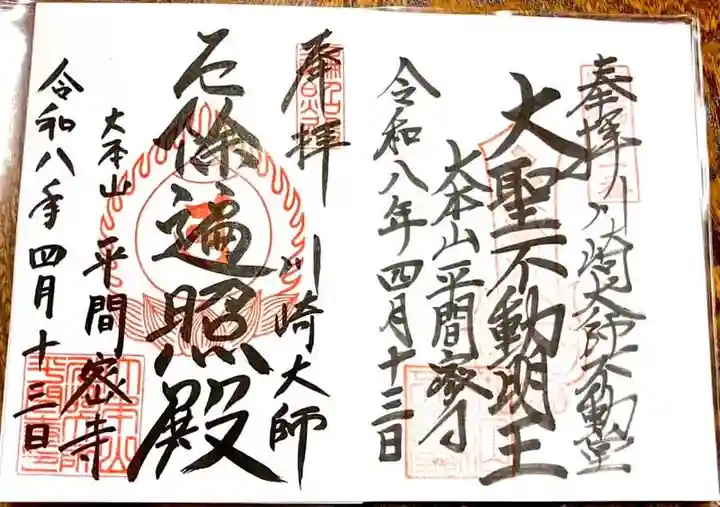 奉拝 川崎大師不動堂
大聖不動明王
大本山平間寺
令和八年四月十三日
奉拝 川崎大師
厄除遍照殿
大本山 平間密寺
令和八年四月十三日